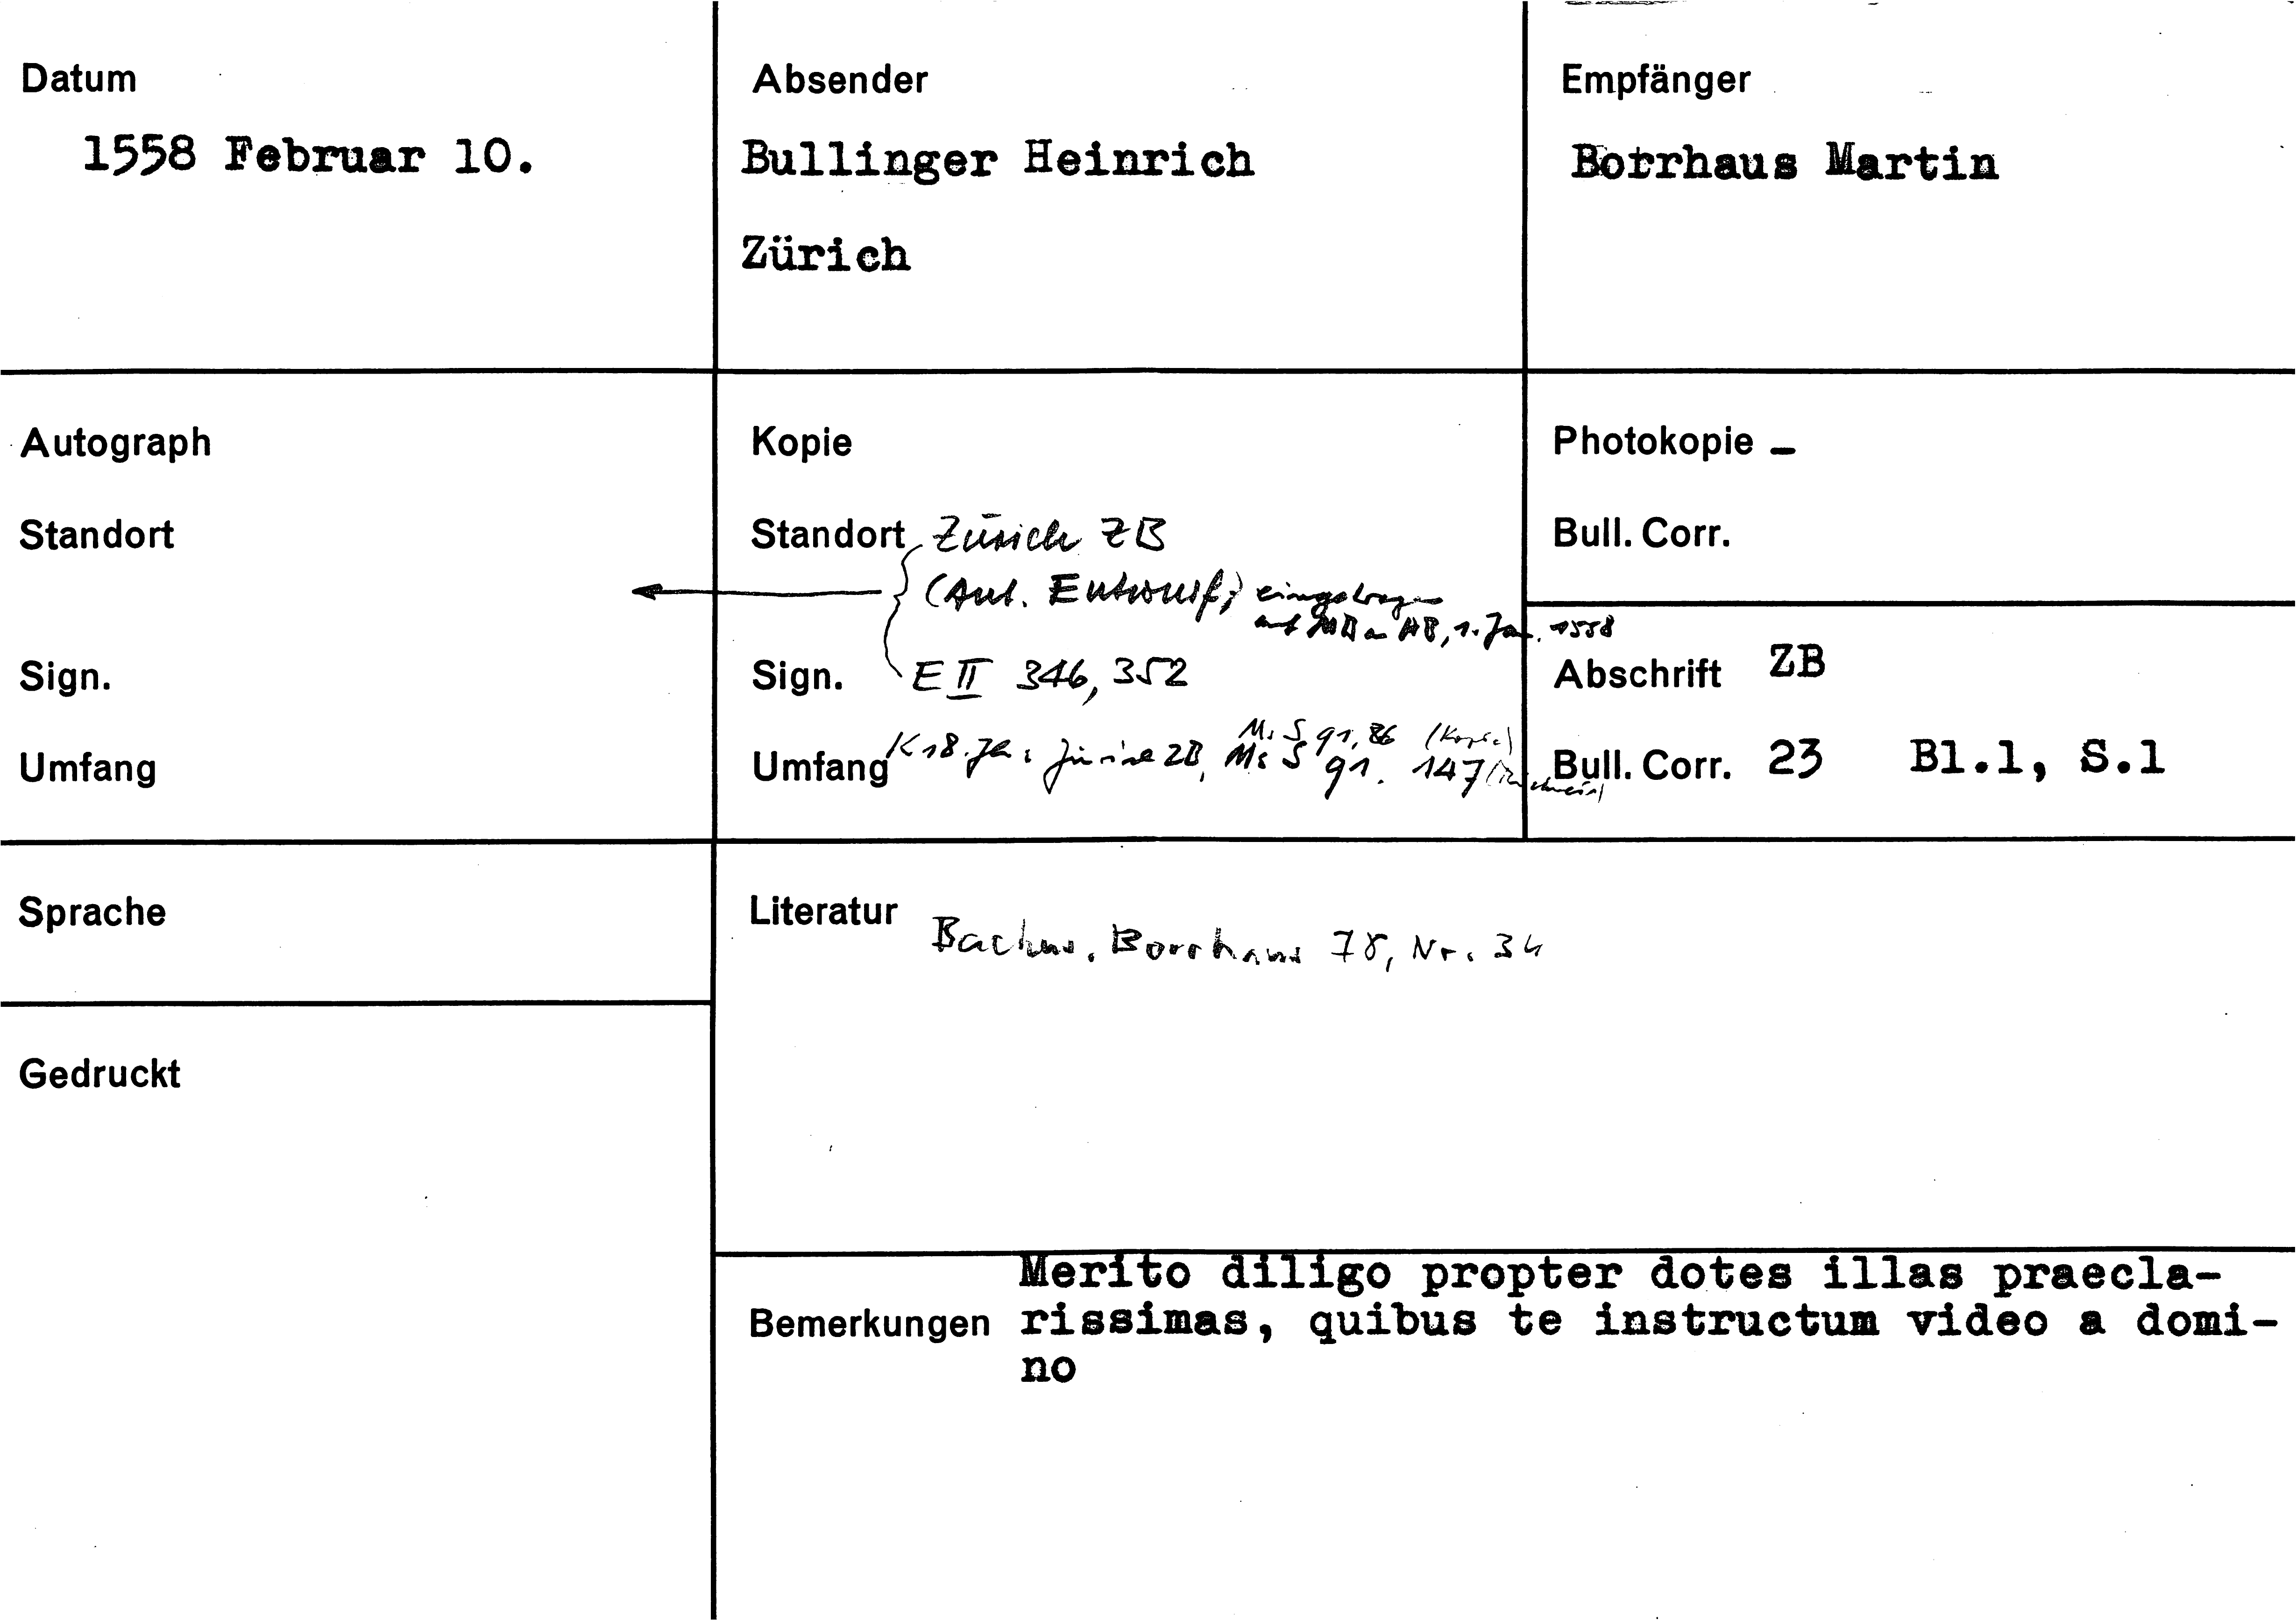 Datum
1558 Februar 10.
Absender
Bullinger Heinrich
Zürich
Empfänger
Borrhaus Martin
Autograph
Standort
Sign.
Umfang
Kopie
Standort Zürich ZB
(Aut. Entwurf, eingetragen
auf MB an HB, 1. Jan. 1558
Sign. E II 346, 352
Ms S 91, 86 (Kopie)
Umfang K 18. Jh.: Zürich ZB, Ms S 91. 147
Photokopie –
Bull. Corr.
Abschrift ZB
Bull. Corr. 23 Bl.1, S.1
Sprache
Gedruckt
Literatur
Backus, Borrhaus 78, Nr. 34
Bemerkungen
Merito diligo propter dotes illas praecla-
rissimas, quibus te instructum video a domi-
no